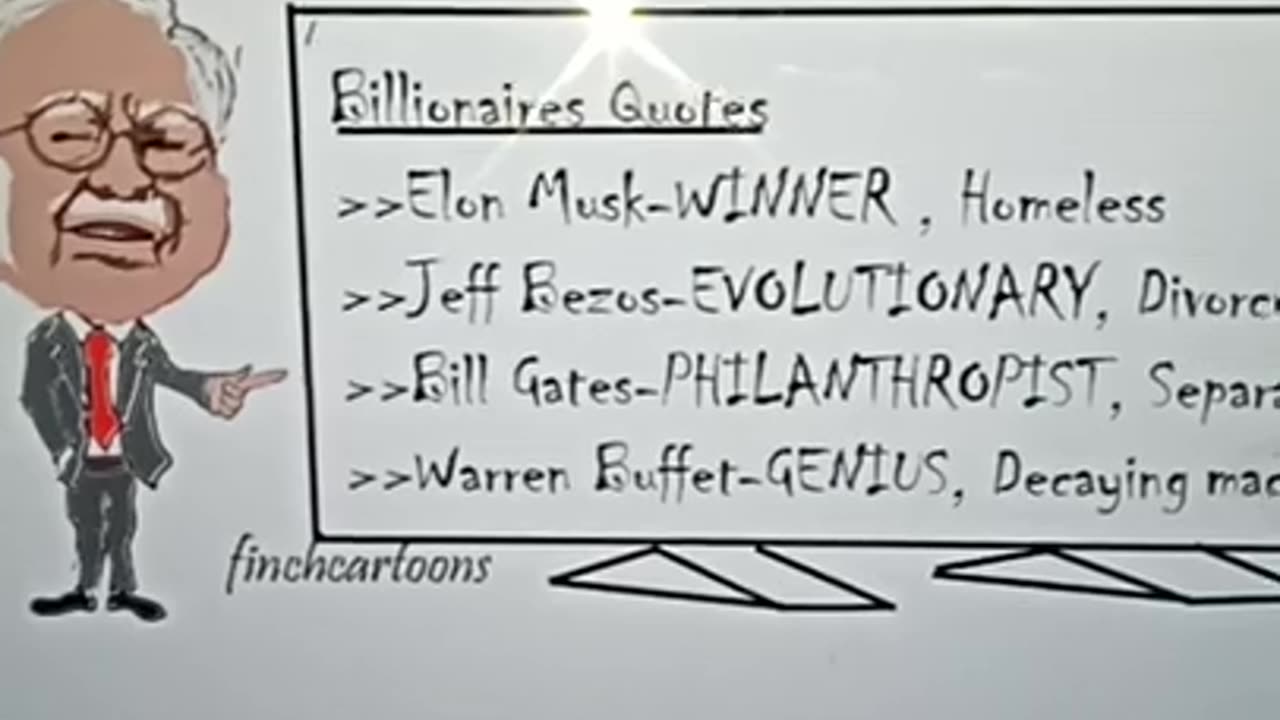 Billionaires Quotes
>>Elon Musk-WINNER , Homeless
>>Jeff Bezos-EVOLUTIONARY, Divorc
>>Bill Gates-PHILANTHROPIST, Separa
>>Warren Buffet-GENIUS, Decaying mac
finchcartoons